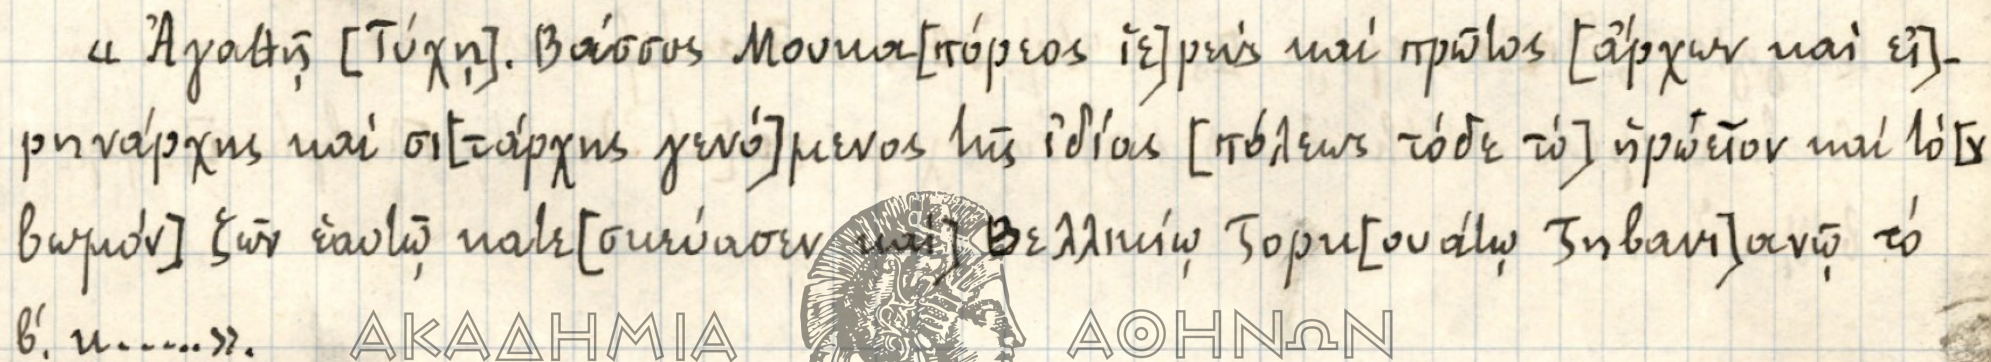 « Ἀγαθῇ [Τύχῃ]. Βάσσος Μουκα[πόρεος ἱε]ρεύς καί πρῶτος [ἄρχων καί εἰ]-
ρηνάρχης καί σι[τάρχης γενό]μενος τῆς ἰδίας [πόλεως τόδε τό] ἡρώεῖον καί τό[ν
βωμόν] ζῶν ἑαυτῷ κατε[σκεύασεν καί] Βελλικίῳ Τορκ[ουάτῳ Τηβανι]ανῷ τό
β΄. κ......».
ΑΚΑΔΗΜΙΑ ΑΘΗΝΩΝ